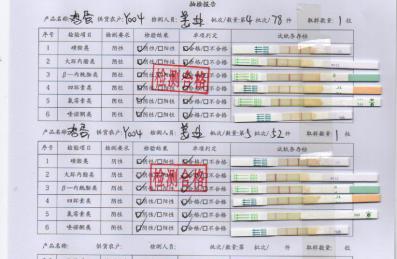 抽检报告
产品名称: 鸡蛋 供货农户: Y004 检测人员: 批次/数量: 第4 批次/78 件 取样数量: 1 枚
序号 检验项目 检验要求 检验结果 单项判定 试纸条存样
1 磺胺类 阴性 ☑阴性/□阳性 ☑合格/□不合格
2 大环内酯类 阴性 ☑阴性/□阳性 ☑合格/□不合格
3 β—内酰胺类 阴性 ☑阴性/□阳性 ☑合格/□不合格
4 四环素类 阴性 ☑阴性/□阳性 ☑合格/□不合格
5 氟霉素类 阴性 ☑阴性/□阳性 ☑合格/□不合格
6 喹诺酮类 阴性 ☑阴性/□阳性 ☑合格/□不合格
检测合格
产品名称: 鸡蛋 供货农户: Y004 检测人员: 批次/数量: 第5 批次/52 件 取样数量: 1 枚
序号 检验项目 检验要求 检验结果 单项判定 试纸条存样
1 磺胺类 阴性 ☑阴性/□阳性 ☑合格/□不合格
2 大环内酯类 阴性 ☑阴性/□阳性 ☑合格/□不合格
3 β—内酰胺类 阴性 ☑阴性/□阳性 ☑合格/□不合格
4 四环素类 阴性 ☑阴性/□阳性 ☑合格/□不合格
5 氟霉素类 阴性 ☑阴性/□阳性 ☑合格/□不合格
6 喹诺酮类 阴性 ☑阴性/□阳性 ☑合格/□不合格
检测合格
产品名称: 供货农户: 检测人员: 批次/数量: 第 批次/ 件 取样数量: 枚